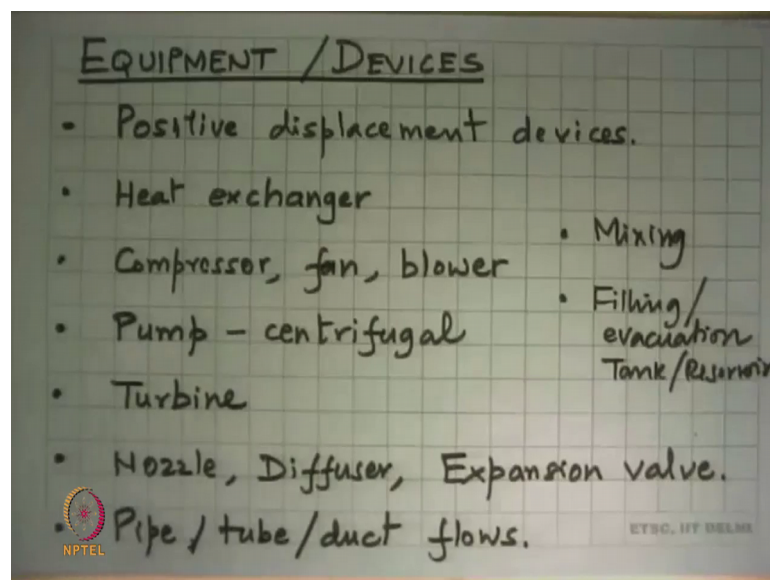 EQUIPMENT / DEVICES
• Positive displacement devices.
• Heat exchanger
• Compressor, fan, blower
• Pump – centrifugal
• Turbine
• Nozzle, Diffuser, Expansion valve.
• Pipe / tube / duct flows.
• Mixing
• Filling /
evacuation
Tank / Reservoir
NPTEL
ETSC, IIT DELHI